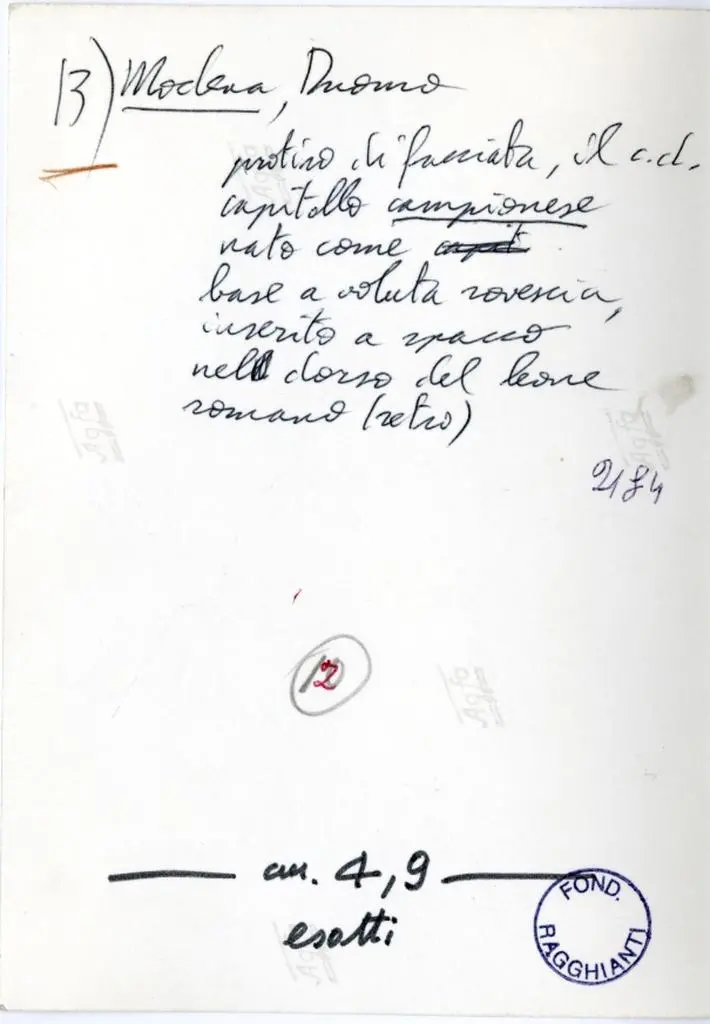 13) Modena, Duomo
protiro di facciata, il c.d.
capitello campionese
nato come capit
base a voluta rovescia,
inserito a spacco
nell dorso del leone
romano (retro)
2184
12
cm. 4,9
esatti
FOND.
RAGGHIANTI
Agfa
Agfa
Agfa
Agfa
Agfa